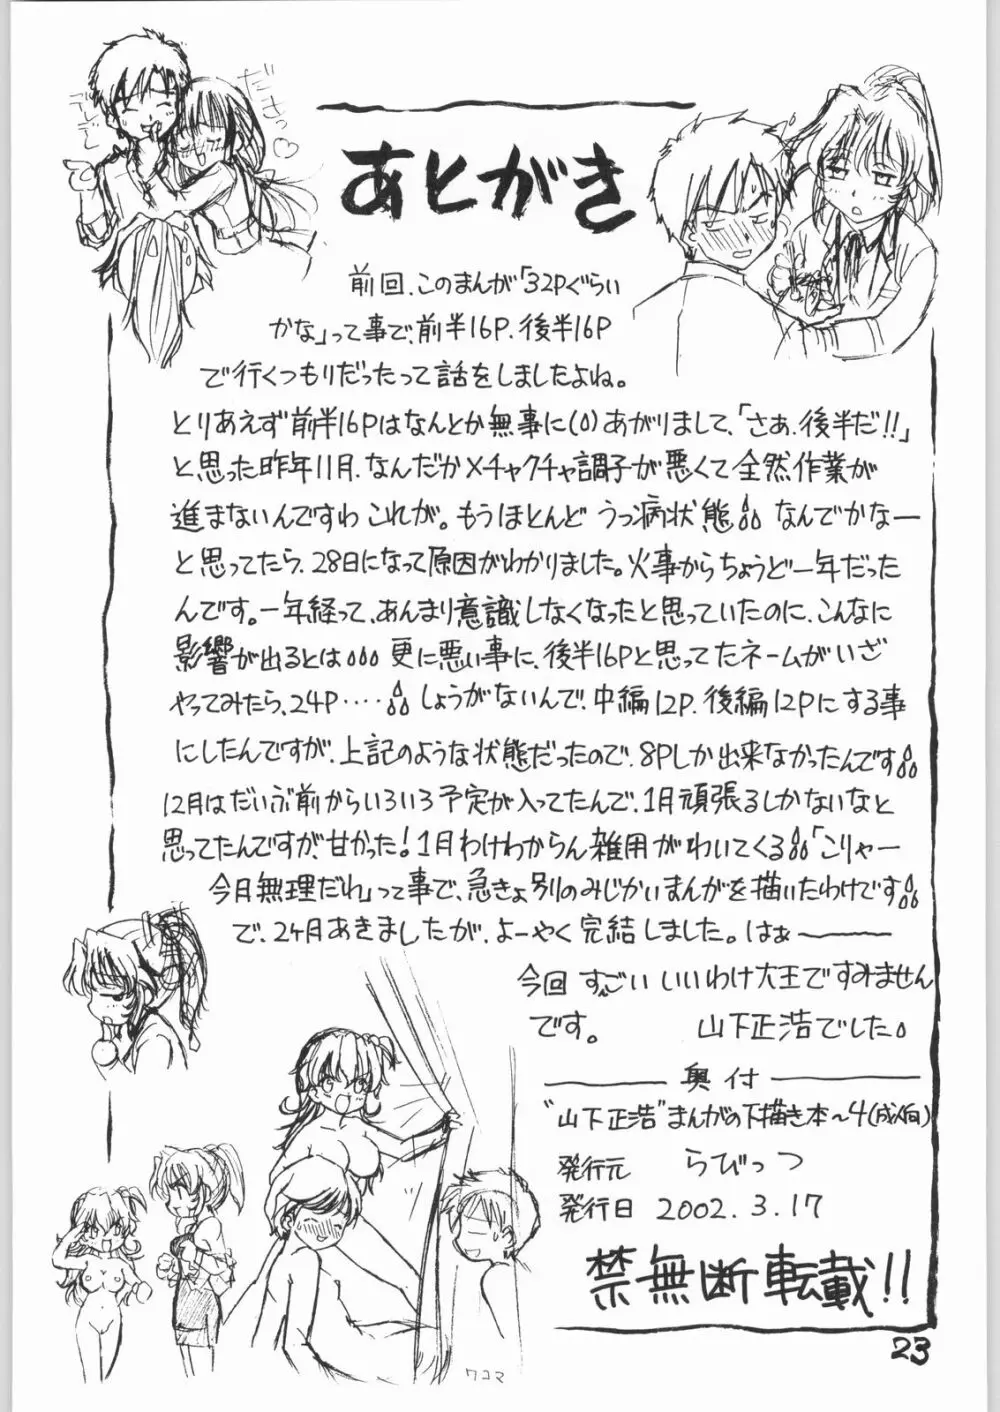 デレデレ
だきっ♡
あとがき
前回、このまんが「32Pぐらい
かな」って事で、前半16P、後半16P
で行くつもりだったって話をしましたよね。
とりあえず前半16Pはなんとか無事に(O)あがりまして、「さあ、後半だ!!」
と思った昨年11月、なんだかメチャクチャ調子が悪くて全然作業が
進まないんですわ これが。もうほとんど うつ病状態 なんでかなー
と思ってたら、28日になって原因がわかりました。火事からちょうど一年だった
んです。一年経って、あんまり意識しなくなったと思っていたのに、こんなに
影響が出るとは 更に悪い事に、後半16Pと思ってたネームがいざ
やってみたら、24P…… しょうがないんで、中編12P、後編12Pにする事
にしたんですが、上記のような状態だったので、8Pしか出来なかったんです
12月はだいぶ前からいろいろ予定が入ってたんで、1月頑張るしかないなと
思ってたんですが、甘かった!1月わけわからん雑用がわいてくる「こりゃー
今月無理だわ」って事で、急きょ別のみじかいまんがを描いたわけです
で、2ヶ月あきましたが、よーやく完結しました。はぁ~
今回 すっごい いいわけ大王ですみません
です。 山下正浩でした。
奥付
"山下正浩"まんがの下描き本~4(成人向)
発行元 らびっつ
発行日 2002.3.17
禁無断転載!!
ワコマ
23